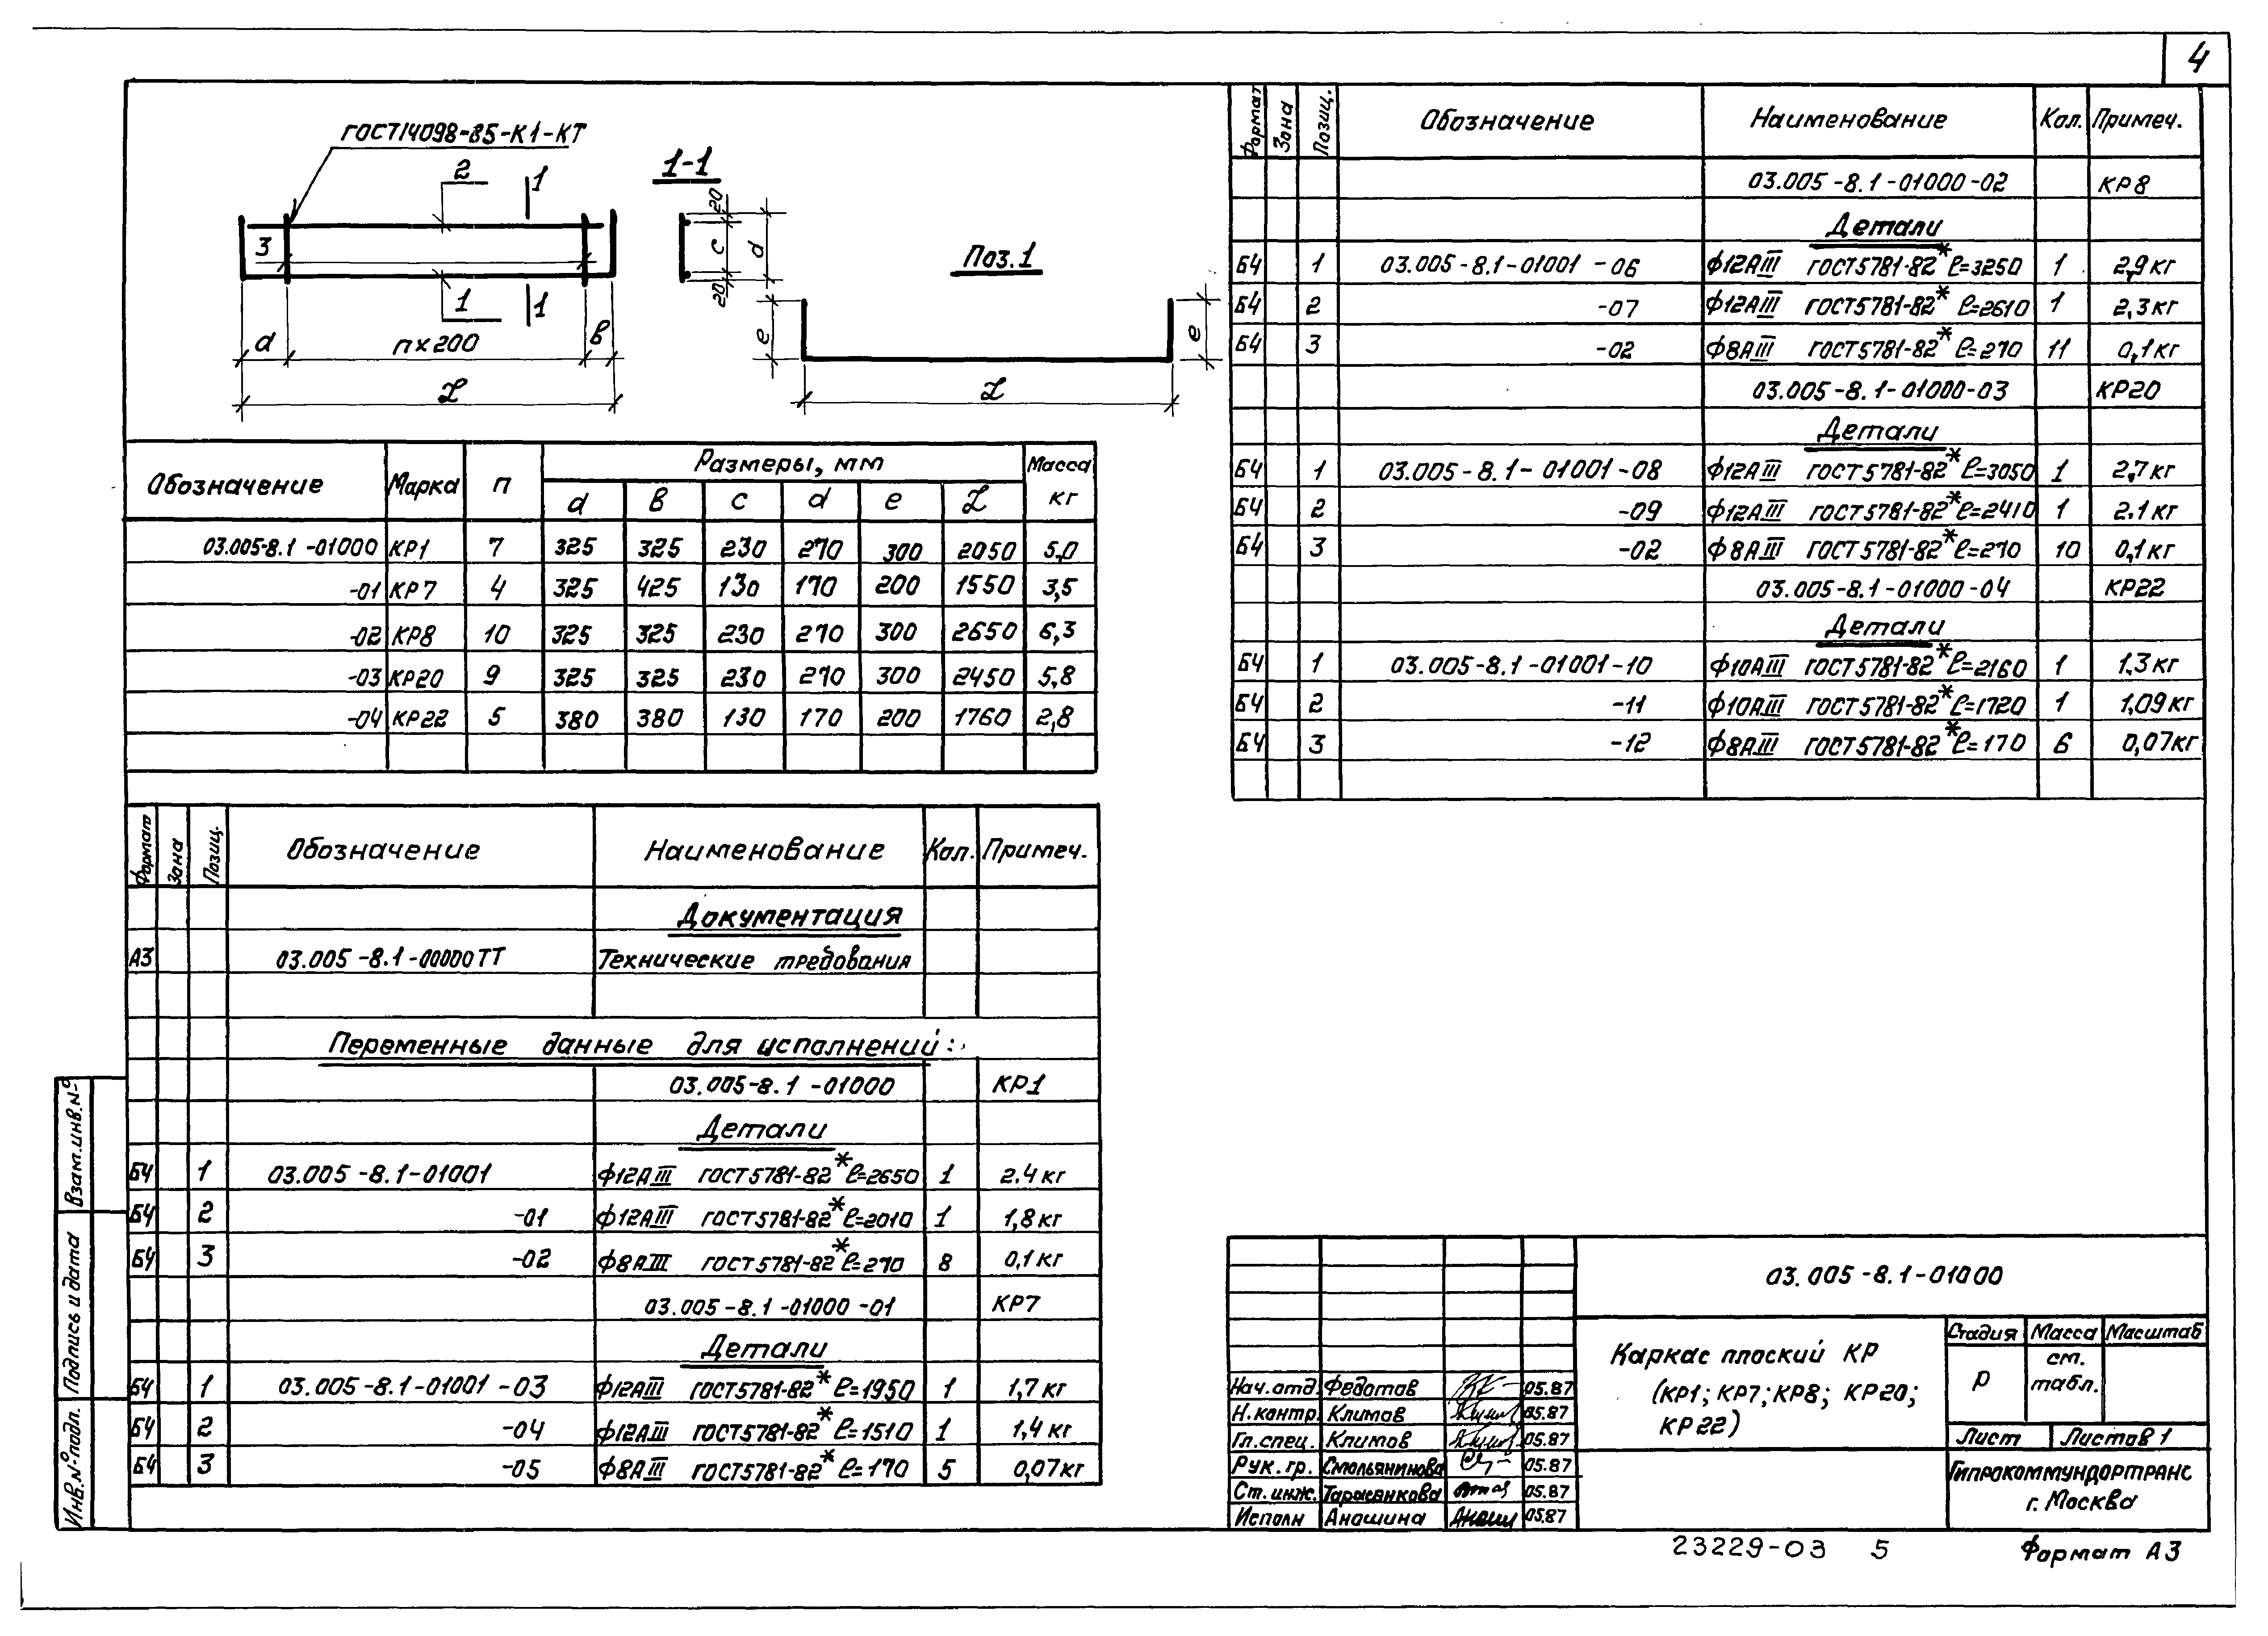 4
ГОСТ14098-85-К1-КТ
2
1
1-1
3
1
1
а
п×200
в
L
20
с
20
d
Поз.1
е
е
L
Обозначение Марка п Размеры, мм Масса кг
а в с d е L
03.005-8.1-01000 КР1 7 325 325 230 270 300 2050 5,0
-01 КР7 4 325 425 130 170 200 1550 3,5
-02 КР8 10 325 325 230 270 300 2650 6,3
-03 КР20 9 325 325 230 270 300 2450 5,8
-04 КР22 5 380 380 130 170 200 1760 2,8
Формат Зона Позиц. Обозначение Наименование Кол. Примеч.
Документация
А3 03.005-8.1-00000ТТ Технические требования
Переменные данные для исполнений:
03.005-8.1-01000 КР1
Детали
Б4 1 03.005-8.1-01001 ф12АIII ГОСТ5781-82* ℓ=2650 1 2.4кг
Б4 2 -01 ф12АIII ГОСТ5781-82* ℓ=2010 1 1,8кг
Б4 3 -02 ф8АIII ГОСТ5781-82* ℓ=270 8 0,1кг
03.005-8.1-01000-01 КР7
Детали
Б4 1 03.005-8.1-01001-03 ф12АIII ГОСТ5781-82* ℓ=1950 1 1,7кг
Б4 2 -04 ф12АIII ГОСТ5781-82* ℓ=1510 1 1,4кг
Б4 3 -05 ф8АIII ГОСТ5781-82* ℓ=170 5 0,07кг
Формат Зона Позиц. Обозначение Наименование Кол. Примеч.
03.005-8.1-01000-02 КР8
Детали
Б4 1 03.005-8.1-01001-06 ф12АIII ГОСТ5781-82* ℓ=3250 1 2,9кг
Б4 2 -07 ф12АIII ГОСТ5781-82* ℓ=2610 1 2,3кг
Б4 3 -02 ф8АIII ГОСТ5781-82* ℓ=270 11 0,1кг
03.005-8.1-01000-03 КР20
Детали
Б4 1 03.005-8.1-01001-08 ф12АIII ГОСТ5781-82* ℓ=3050 1 2,7кг
Б4 2 -09 ф12АIII ГОСТ5781-82* ℓ=2410 1 2.1кг
Б4 3 -02 ф8АIII ГОСТ5781-82* ℓ=270 10 0,1кг
03.005-8.1-01000-04 КР22
Детали
Б4 1 03.005-8.1-01001-10 ф10АIII ГОСТ5781-82* ℓ=2160 1 1.3кг
Б4 2 -11 ф10АIII ГОСТ5781-82* ℓ=1720 1 1,09кг
Б4 3 -12 ф8АIII ГОСТ5781-82* ℓ=170 6 0,07кг
Взам.инв.№
Подпись и дата
Инв.№подл.
03.005-8.1-01000
Каркас плоский КР
(КР1; КР7; КР8; КР20;
КР22)
Стадия Масса Масштаб
Р ст. табл.
Лист Листов 1
Гипрокоммундортранс
г. Москва
Нач.отд. Федотов 05.87
Н.контр. Климов 05.87
Гл.спец. Климов 05.87
Рук.гр. Смольянинова 05.87
Ст.инж. 05.87
Исполн Аношина 05.87
23229-03 5
Формат А3